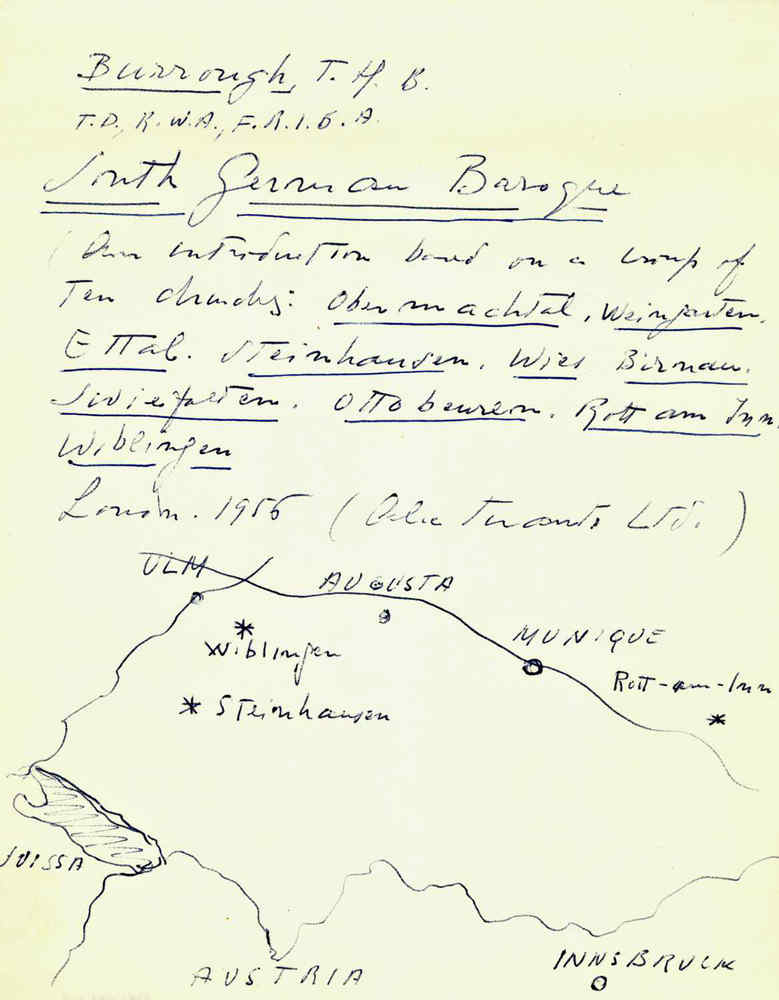 Burrough, T. H. B.
T.D., R.W.A., F.R.I.B.A.
South German Baroque
(An introduction based on a Group of
Ten churches: Obermachtal, Weingarten,
Ettal. Steinhausen. Wies Birnau.
Zwiefalten. Ottobeuren. Rott am Inn.
Wiblingen
London. 1956 ( Tiranti Ltd. )
ULM
AUGUSTA
MUNIQUE
Wiblingen
Rott-am-Inn
Steinhausen
SUISSA
AUSTRIA
INNSBRUCK